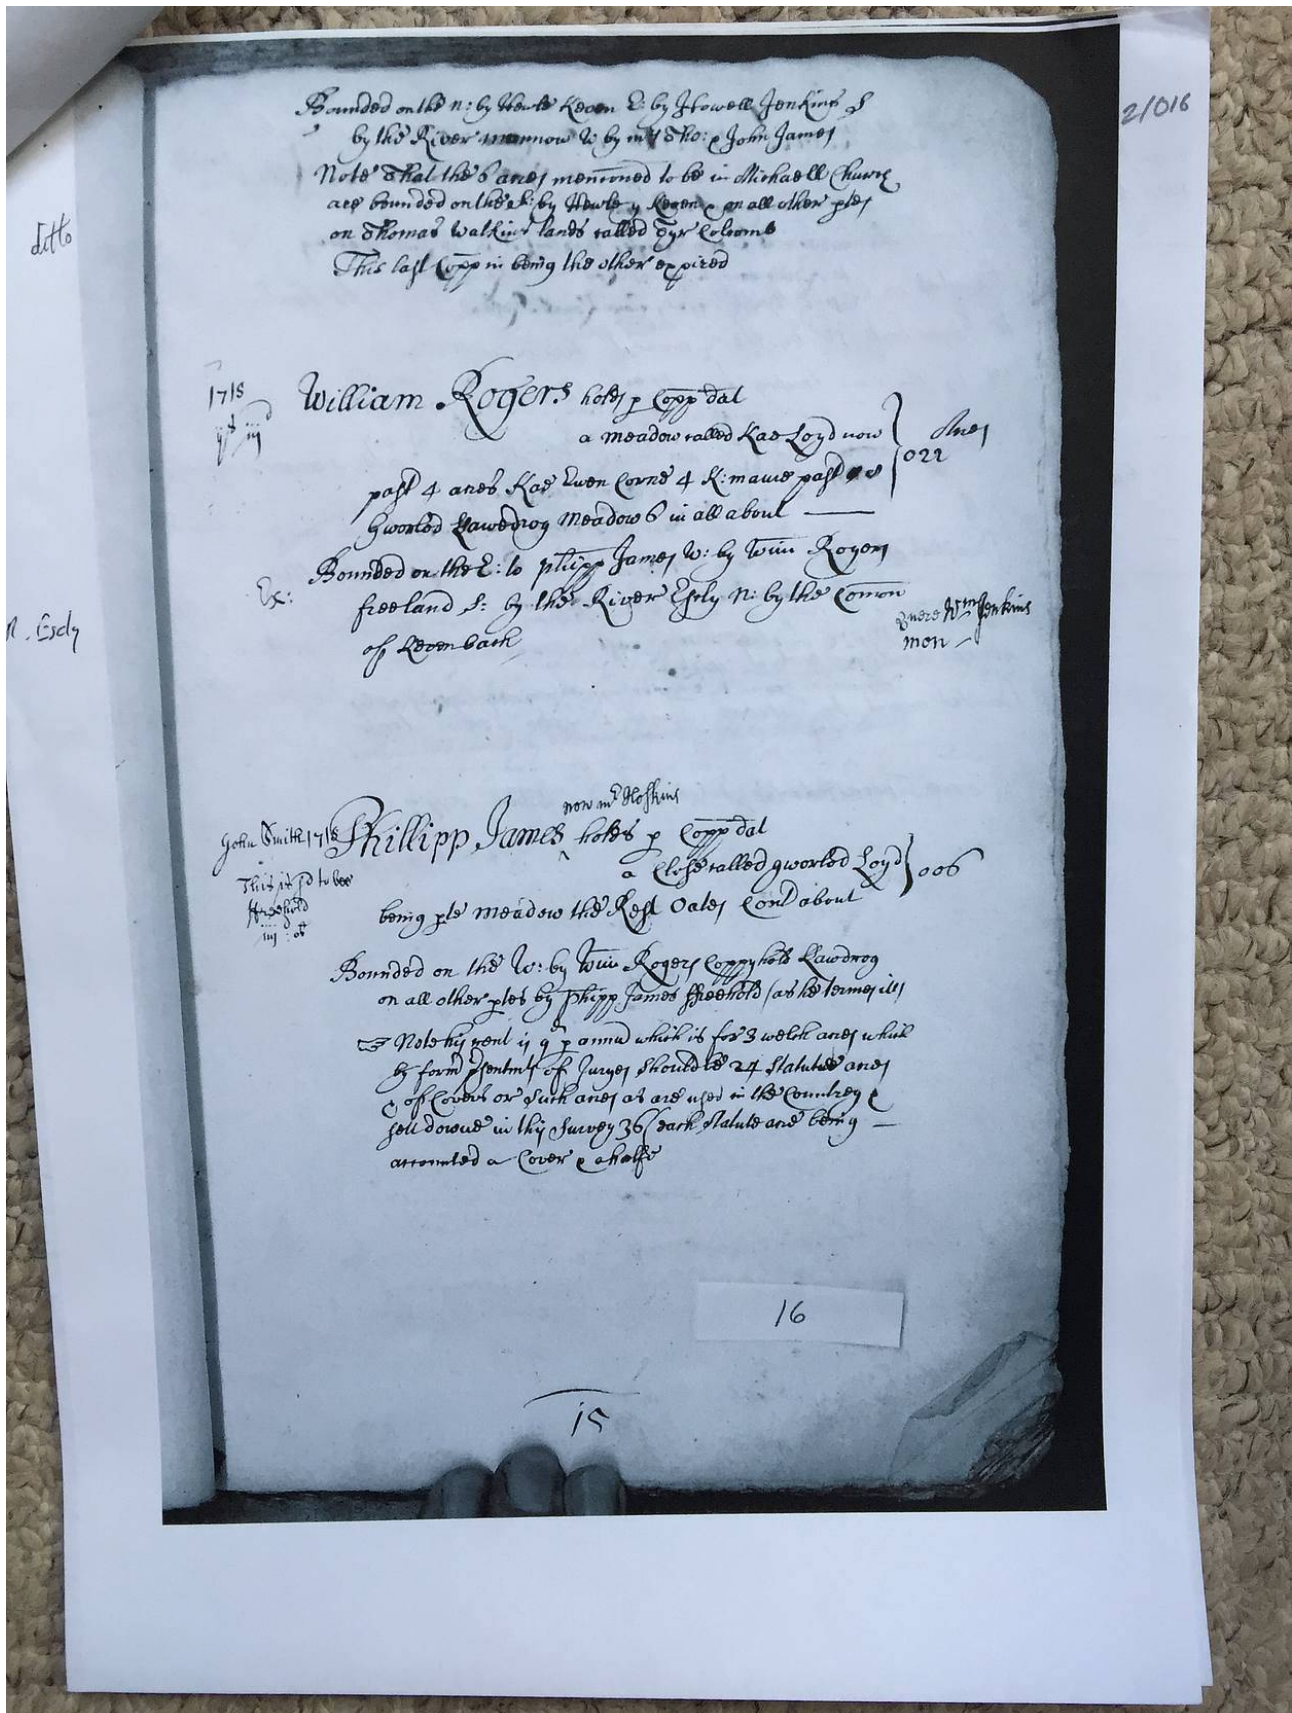 2/016
ditto
Bounded on the n: by Hewle Keven E: by Howell Jenkins S
by the River munnow W: by mr Tho: & John James
Note That the 6 acres mentioned to be in Michaell Church
are bounded on the S: by Hewle y Keven & on all other ptes
on Thomas Watkins lands called Tyr Colcomb
This last Copp in being the other expired
1718
William Rogers holds p Copp dat
a meadow called Kae Loyd now
Acres
022
past 4 acres Kae Ewen Corne 4 K: mawe past 8
Gworlod Llawedrog Meadow 6 in all about
Bounded on the E: to Phipp James W: by Wm Rogers
Ex:
freeland S: by the River Escly N: by the Comon
of Keven bach
Quere Wm Jenkins
mon
R. Escly
now mr Hoskins
John Smith 1718
Phillipp James holds p Copp dat
a Close called gworlod Loyd
006
This is sd to bee
ffreehold
iiij : ob
being pte meadow the Rest Oates Cont about
Bounded on the W: by Wm Rogers Coppyhold Llawdrog
on all other ptes by Phipp James ffreehold (as he termes itt)
Note his rent is 9d p annu which is for 3 welch acres which
by form psentmts of Juryes should be 24 Statute acres
& of Covers or such acres as are used in the Countrey &
sett downe in this Survey 36 (each Statute acre being
accounted a Cover & a halfe
16
15